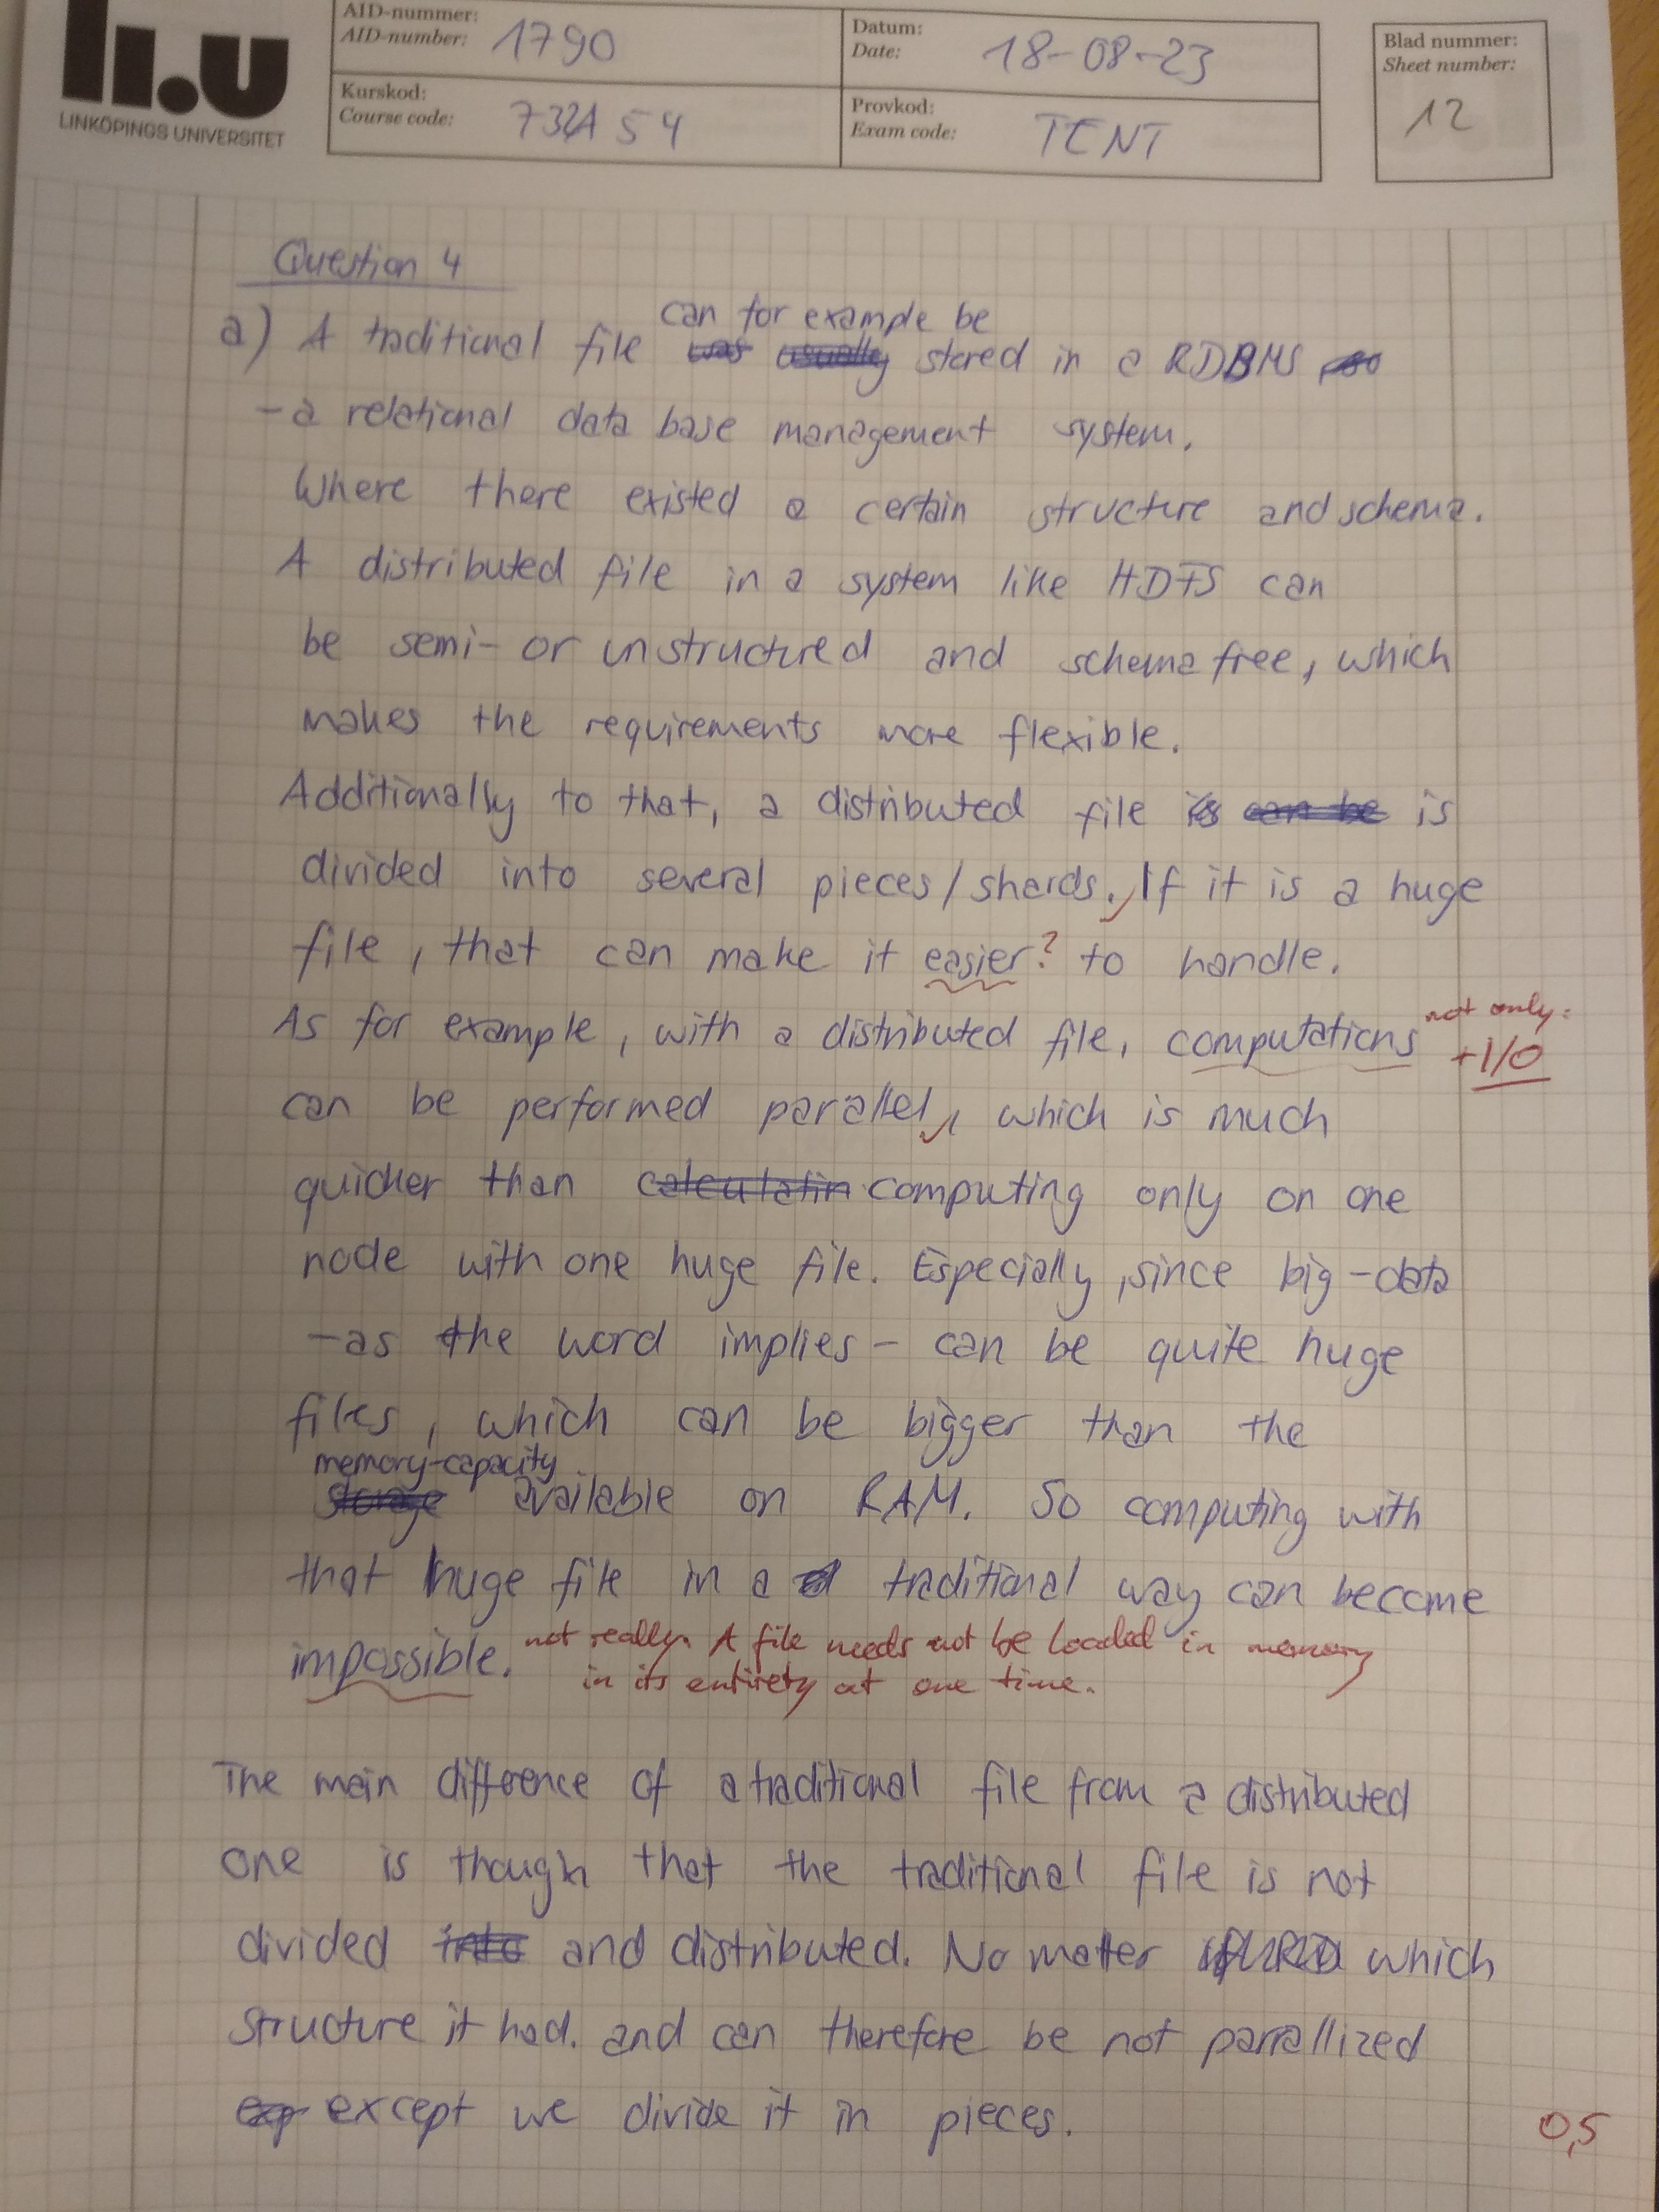 li.u
LINKÖPINGS UNIVERSITET
AID-nummer:
AID-number: 1790
Datum:
Date: 18-08-23
Blad nummer:
Sheet number:
12
Kurskod:
Course code: 732A54
Provkod:
Exam code: TENT
Question 4
can for example be
a) A traditional file was usually stored in a RDBMS
- a relational data base management system.
Where there existed a certain structure and schema.
A distributed file in a system like HDFS can
be semi- or unstructured and schema free, which
makes the requirements more flexible.
Additionally to that, a distributed file is can be is
divided into several pieces/shards. If it is a huge
file, that can make it easier? to handle.
As for example, with a distributed file, computations not only:
+I/O
can be performed parallel, which is much
quicker than calculatin computing only on one
node with one huge file. Especially, since big-data
-as the word implies- can be quite huge
files, which can be bigger than the
memory-capacity
storage available on RAM. So computing with
that huge file in a traditional way can become
impossible. not really. A file needs not be loaded in memory
in its entirety at one time.
The main difference of a traditional file from a distributed
one is though that the traditional file is not
divided into and distributed. No matter which
structure it had. and can therefore be not parrallized
exp except we divide it in pieces.
0,5